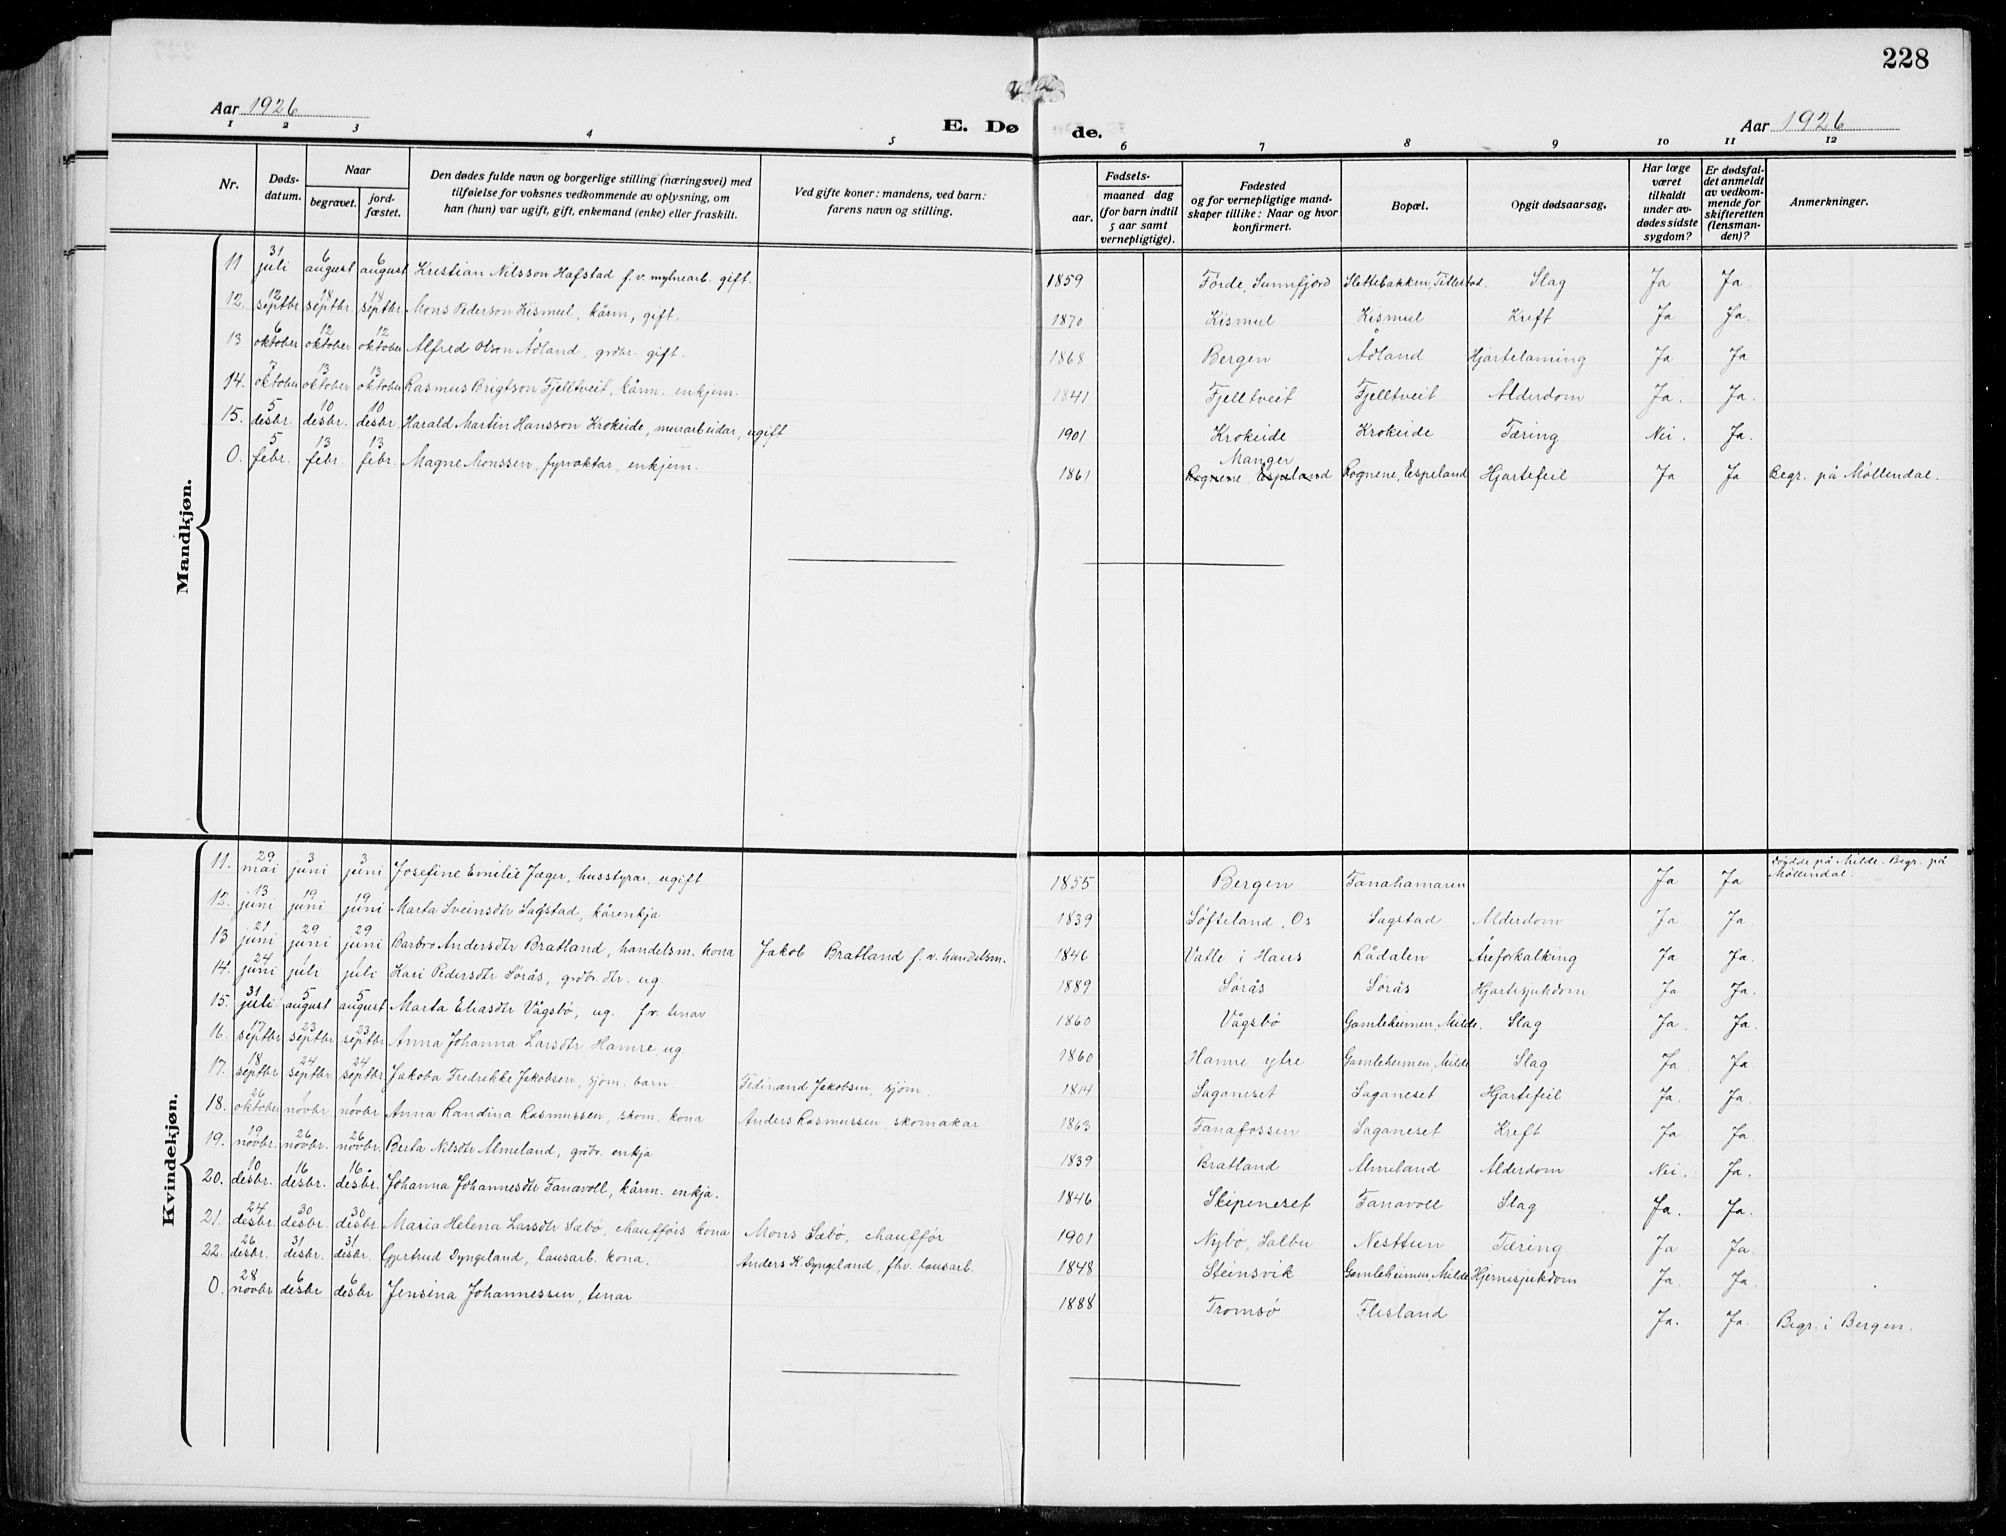 228
Aar 1926
E. Dø de.
Aar 1926
1 2 3 4 5 6 7 8 9 10 11 12
Nr. | Døds-datum. | Naar begravet. | jord-fæstet. | Den dødes fulde navn og borgerlige stilling (næringsvei) med tilføielse for voksnes vedkommende av oplysning, om han (hun) var ugift, gift, enkemand (enke) eller fraskilt. | Ved gifte koner: mandens, ved barn: farens navn og stilling. | Fødsels- aar. | maaned dag (for barn indtil 5 aar samt vernepligtige). | Fødested og for vernepligtige mandskaper tillike: Naar og hvor konfirmert. | Bopæl. | Opgit dødsaarsag. | Har læge været tilkaldt under avdødes sidste sygdom? | Er dødsfaldet anmeldt av vedkommende for skifteretten (lensmanden)? | Anmerkninger.
Mandkjøn.
11 | 31 juli | 6 august | 6 august | Kristian Nilsson Hafstad f.v. mylnearb. gift. | 1859 | Förde, Sunnfjord | Slettebakken, Tillestad. | Slag | Ja | Ja.
12. | 12 septbr | 18 septbr | 18 septbr | Mons Pederson Kismul, kårm, gift. | 1870 | Kismul | Kismul | Kreft | Ja | Ja.
13 | 6 oktober | 12 oktober | 12 oktober | Alfred Olson Ådland, grdbr. gift. | 1868 | Bergen | Ådland | Hjartelaming | Ja | Ja
14. | 7 oktober | 13 oktober | 13 oktober | Rasmus Brigtson Fjelltveit, kårm. enkjem. | 1841 | Fjelltveit | Fjelltveit | Alderdom | Ja. | Ja.
15. | 5 desbr. | 10 desbr. | 10 desbr | Harald Martin Hansson Krokeide, murarbeidar, ugift | 1901 | Krokeide | Krokeide | Tæring | Nei. | Ja.
0. | 5 febr. | 13 febr. | 13 febr. | Magne Monssen, fyrvaktar, enkjem. | 1861 | Manger Rognene, Espeland | Rognene, Espeland | Hjartefeil | Ja | Ja | Begr. på Möllendal.
Kvindekjøn.
11. | 29 mai | 3 juni | 3 juni | Josefine Emilie Jæger, husstyrar, ugift | 1855 | Bergen | Fanahamaren | Ja | Ja | Döydde på Milde. Begr. på Möllendal.
12. | 13 juni | 19 juni | 19 juni | Marta Sveinsdtr Sagstad, kårenkja | 1839 | Söfteland, Os | Sagstad | Alderdom | Ja | Ja.
13 | 21 juni | 29 juni | 29 juni | Barbro Andersdtr Bratland, handelsm. kona | Jakob Bratland f.v. handelsm. | 1846 | Vatle i Haus | Rådalen | Åreforkalking | Ja | Ja.
14. | 24 juni | 1 juli | 1 juli | Kari Pedersdtr Sörås, grdbr. dtr. ug. | 1889 | Sörås | Sörås | Hjartesjukdom | Ja | Ja.
15. | 31 juli | 5 august | 5 august | Marta Eliasdtr Vågsbö, ug. f.v. tenar | 1860 | Vågsbö | Gamleheimen, Milde. | Slag | Ja. | Ja.
16. | 17 septbr | 23 septbr | 23 septbr | Anna Johanna Larsdtr Hamre ug | 1860 | Hamre ytre | Gamleheimen, Milde | Slag | Ja. | Ja.
17. | 18 septbr | 24 septbr | 24 septbr | Jakoba Fredrikke Jakobsen, sjöm. barn. | Ferdinand Jakobsen, sjöm. | 1814 | Saganeset | Saganeset | Hjartefeil | Ja. | Ja.
18. | 26 oktober | 1 novbr | 1 novbr | Anna Randina Rasmussen, skom. kona | Anders Rasmussen, skomakar | 1863 | Fanafossen | Saganeset | Kreft | Ja | Ja.
19. | 19 novbr. | 26 novbr. | 26 novbr. | Berta Nilsdtr Almeland, grdbr. enkja | 1839 | Bratland | Almeland | Alderdom | Nei. | Ja.
20. | 10 desbr. | 16 desbr. | 16 desbr. | Johanna Johannesdtr Fanavoll, kårm. enkja. | 1846 | Skipeneset | Fanavoll | Slag | Ja. | Ja.
21. | 24 desbr. | 30 desbr. | 30 desbr. | Maria Helena Larsdtr Sæbö, chaufförs kona | Mons Sæbö, chauffør | 1901 | Nybö, Salbu | Nesttun | Tæring | Ja | Ja.
22. | 26 desbr. | 31 desbr. | 31 desbr. | Gjertrud Dyngeland, lausarb. kona. | Anders K. Dyngeland, fhv. lausarb. | 1848 | Steinsvik | Gamleheimen, Milde | Hjernesjukdom | Ja. | Ja.
0. | 28 novbr | 6 desbr | 6 desbr | Jensina Johannessen, tenar | 1888 | Tromsö | Flesland | Ja. | Ja. | Begr. i Bergen.